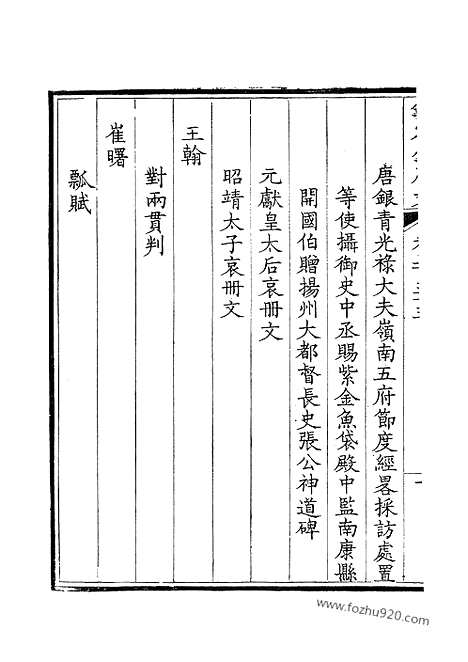 唐銀青光祿大夫嶺南五府節度經畧採訪處置
等使攝御史中丞賜紫金魚袋殿中監南康縣
開國伯贈揚州大都督長史張公神道碑
元獻皇太后哀冊文
昭靖太子哀冊文
王翰
對兩貫判
崔曙
瓢賦
www.fozhu920.com